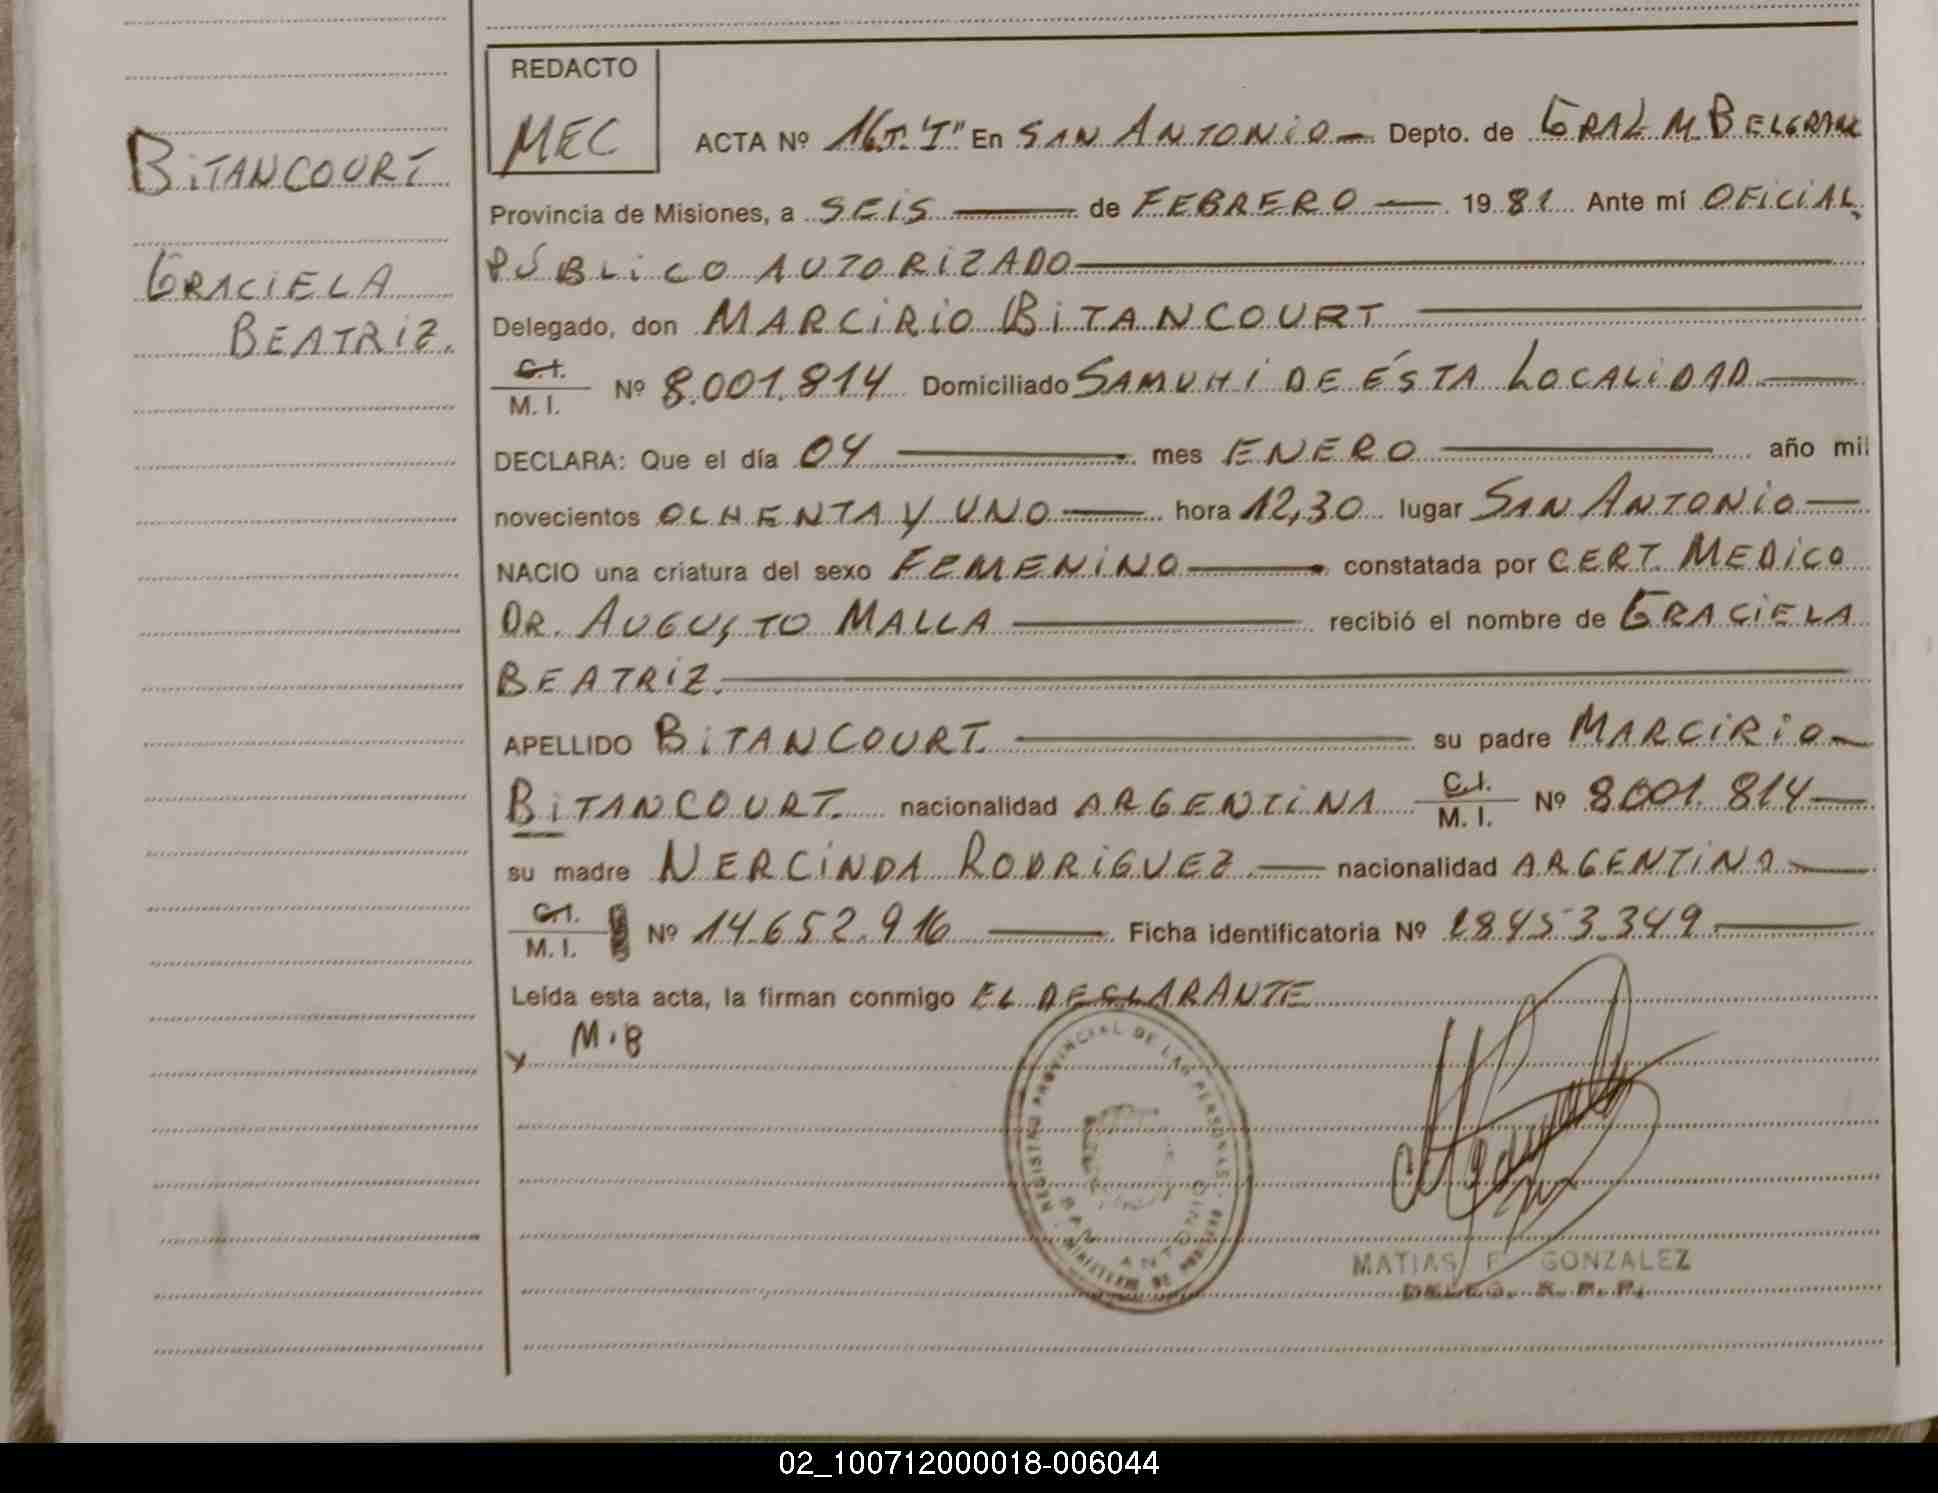 BITANCOURT
GRACIELA
BEATRIZ.
REDACTO
MEC
ACTA Nº 16 T. "I" En SAN ANTONIO Depto. de GRAL M. BELGRANO
Provincia de Misiones, a SEIS de FEBRERO 1981 Ante mí OFICIAL
PÚBLICO AUTORIZADO
Delegado, don MARCIRIO BITANCOURT
C.I.
M. I. Nº 8.001.814 Domiciliado SAMUHI DE ÉSTA LOCALIDAD
DECLARA: Que el día 04 mes ENERO año mil
novecientos OCHENTA Y UNO hora 12,30 lugar SAN ANTONIO
NACIO una criatura del sexo FEMENINO constatada por CERT. MEDICO
DR. AUGUSTO MALLA recibió el nombre de GRACIELA
BEATRIZ.
APELLIDO BITANCOURT. su padre MARCIRIO
BITANCOURT. nacionalidad ARGENTINA C.I.
M. I. Nº 8.001.814
su madre NERCINDA RODRIGUEZ nacionalidad ARGENTINA
C.I.
M. I. Nº 14.652.916 Ficha identificatoria Nº 28.453.349
Leída esta acta, la firman conmigo EL DECLARANTE
M.B
REGISTRO PROVINCIAL DE LAS PERSONAS
MINISTERIO DE GOBIERNO
SAN ANTONIO
MATIAS F. GONZALEZ
DELEG. R. P. P.
02_100712000018-006044